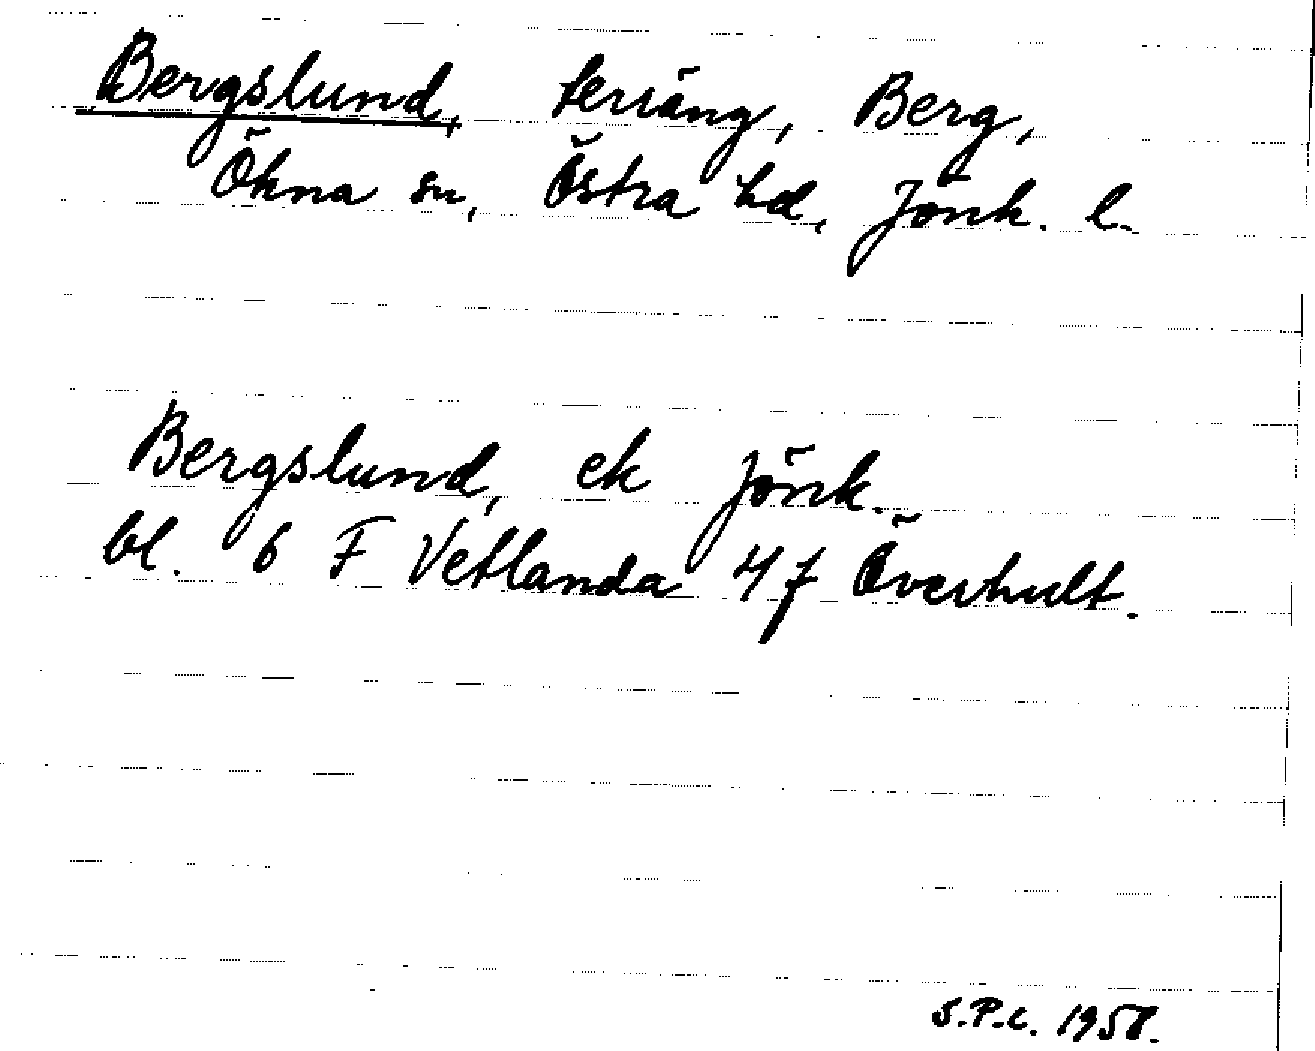 Bergslund, terräng, Berg,
Ökna sn, Östra hd, Jönk. l.
Bergslund, ek Jönk.
bl. 6 F Vetlanda 4 f Överhult.
S.P.C. 1958.